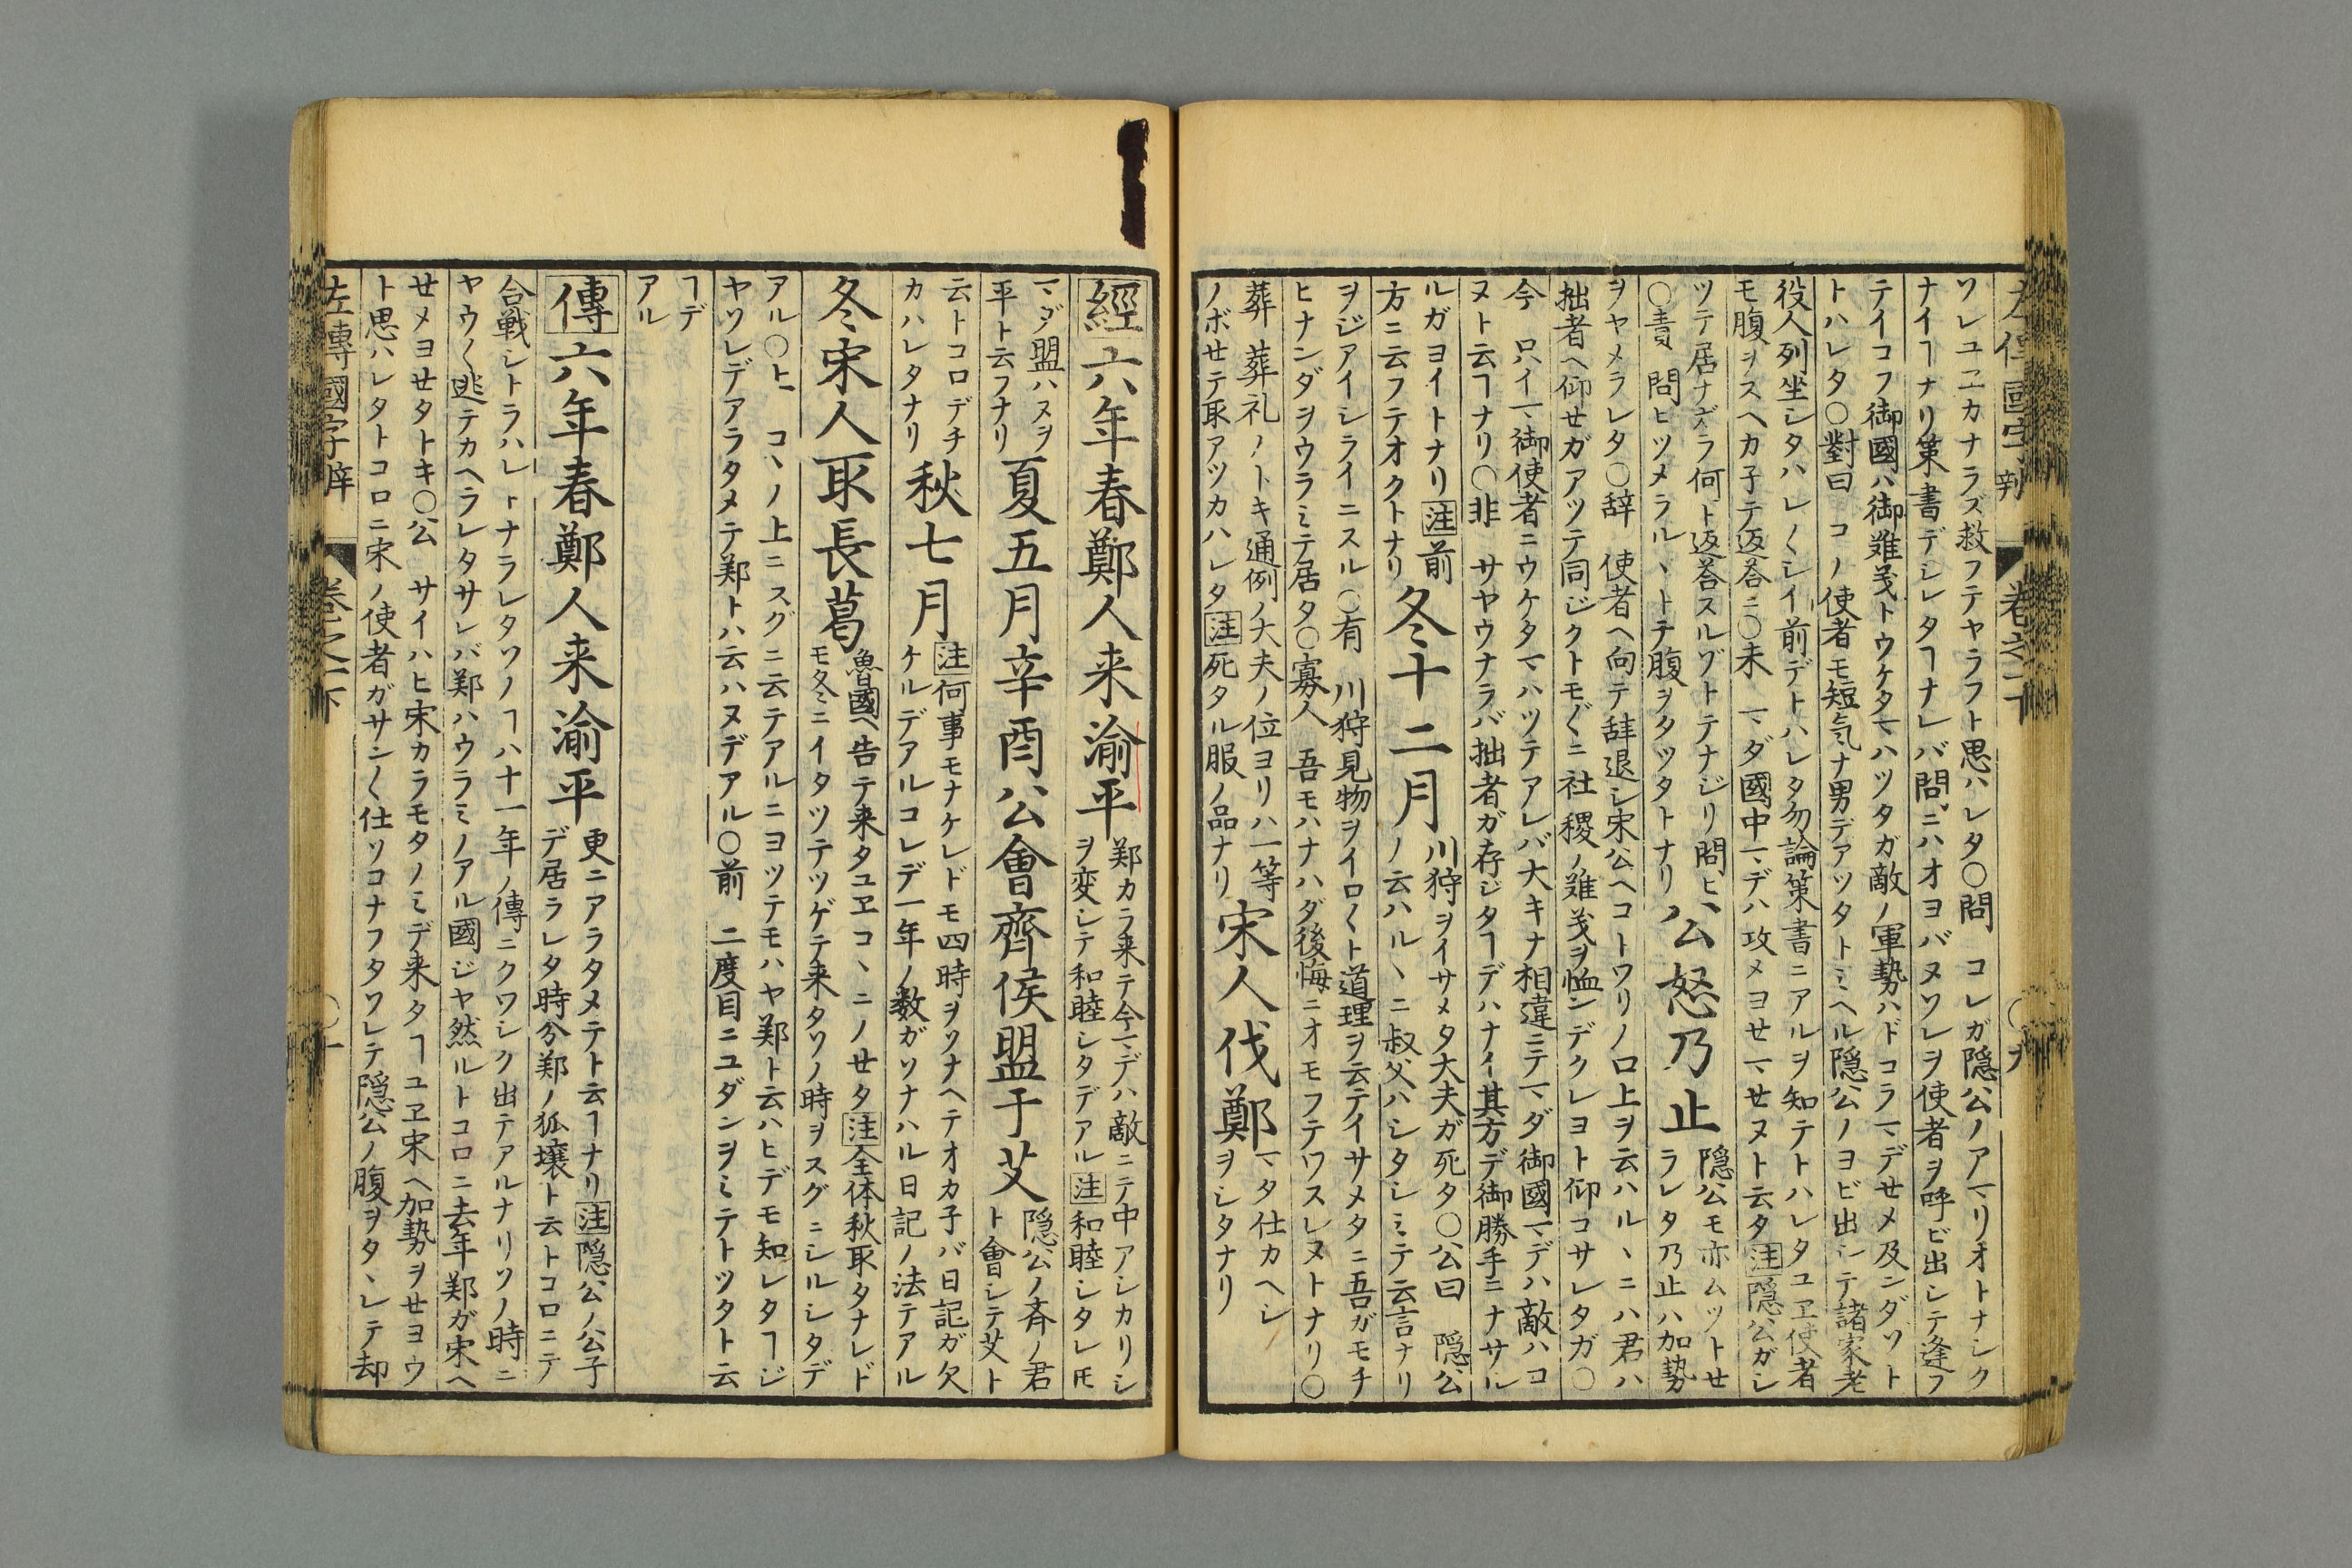 左傳國字辨 卷之一下 〇九
ソレユヱカナラズ救フテヤラフト思ハレタ〇問 コレガ隠公ノアマリオトナシク
ナイヿナリ策書デシレタヿナレバ問ニハオヨバヌソレヲ使者ヲ呼ビ出シテ逢フ
テイコフ御國ハ御難義トウケタマハツタガ敵ノ軍勢ハドコラマデセメ及ンダソト
トハレタ〇對曰 コノ使者モ短気ナ男デアツタトミヘル隠公ノヨビ出シテ諸家老
役人列坐シタハレ〱シイ前デトハレタ勿論策書ニアルヲ知テトハレタユヱ使者
モ腹ヲスヘカ子テ返荅ニ〇未 マダ國中マデハ攻メヨセマセヌト云タ注隠公ガシ
ツテ居ナガラ何ト返荅スルゾトテナジリ問ヒ
〇責 問ヒツメラルヽトテ腹ヲタツタトナリ
公怒乃止
隠公モ亦ムツトセ
ラレタ乃止ハ加勢
ヲヤメラレタ〇辞 使者ヘ向テ辞退シ宋公ヘコトワリノ口上ヲ云ハルヽニハ君ハ
拙者ヘ仰せガアツテ同ジクトモ〲ニ社稷ノ難義ヲ恤ンデクレヨト仰コサレタガ〇
今 只イマ御使者ニウケタマハツテアレバ大キナ相違ニテマダ御國マデハ敵ハコ
ヌト云ヿナリ〇非 サヤウナラバ拙者ガ存ジタヿデハナイ其方デ御勝手ニナサル
ルガヨイトナリ注前
方ニ云フテオクトナリ
冬十二月
川狩ヲイサメタ大夫ガ死タ〇公曰 隠公
ノ云ハルヽニ叔父ハシタシミテ云言ナリ
ヲジアイシライニスル〇有 川狩見物ヲイロ〱ト道理ヲ云テイサメタニ吾ガモチ
ヒナンダヲウラミテ居タ〇寡人 吾モハナハダ後悔ニオモフテワスレヌトナリ〇
葬 葬礼ノトキ通例ノ大夫ノ位ヨリハ一等
ノボセテ取アツカハレタ注死タル服ノ品ナリ
宋人伐鄭
マタ仕カヘシ
ヲシタナリ
經六年春鄭人来渝平
郑カラ来テ今マデハ敵ニテ中アシカリシ
ヲ変シテ和睦シタデアル注和睦シタレ𪜈
マダ盟ハヌヲ
平ト云フナリ
夏五月辛酉公會齊侯盟于艾
隠公ノ斉ノ君
ト會シテ艾ト
云トコロデチ
カハレタナリ
秋七月
注何事モナケレドモ四時ヲソナヘテオカ子バ日記ガ欠
ケルデアルコレデ一年ノ数ガソナハル日記ノ法テアル
冬宋人取長葛
魯國ヘ告テ来タユヱコヽニノせタ注全体秋取タナレド
モ冬ニイタツテツゲテ来タソノ時ヲスグニシルシタデ
アル〇上 コヽノ上ニスグニ云テアルニヨツテモハヤ郑ト云ハヒデモ知レタヿジ
ヤソレデアラタメテ郑トハ云ハヌデアル〇前 二度目ニユダンヲミテトツタト云
ヿデ
アル
傳六年春鄭人来渝平
更ニアラタメテト云ヿナリ注隠公ノ公子
デ居ラレタ時分郑ノ狐壌ト云トコロニテ
合戦シトラハレトナラレタソノヿハ十一年ノ傳ニクワシク出テアルナリソノ時ニ
ヤウ〱逃テカヘラレタサレバ郑ハウラミノアル國ジヤ然ルトコロニ去年郑ガ宋ヘ
せメヨせタトキ〇公 サイハヒ宋カラモタノミデ来タヿユヱ宋ヘ加勢ヲせヨウ
ト思ハレタトコロニ宋ノ使者ガサン〱仕ソコナフタソレテ隠公ノ腹ヲタヽレテ却
左傳國字辨 卷之一下 〇十